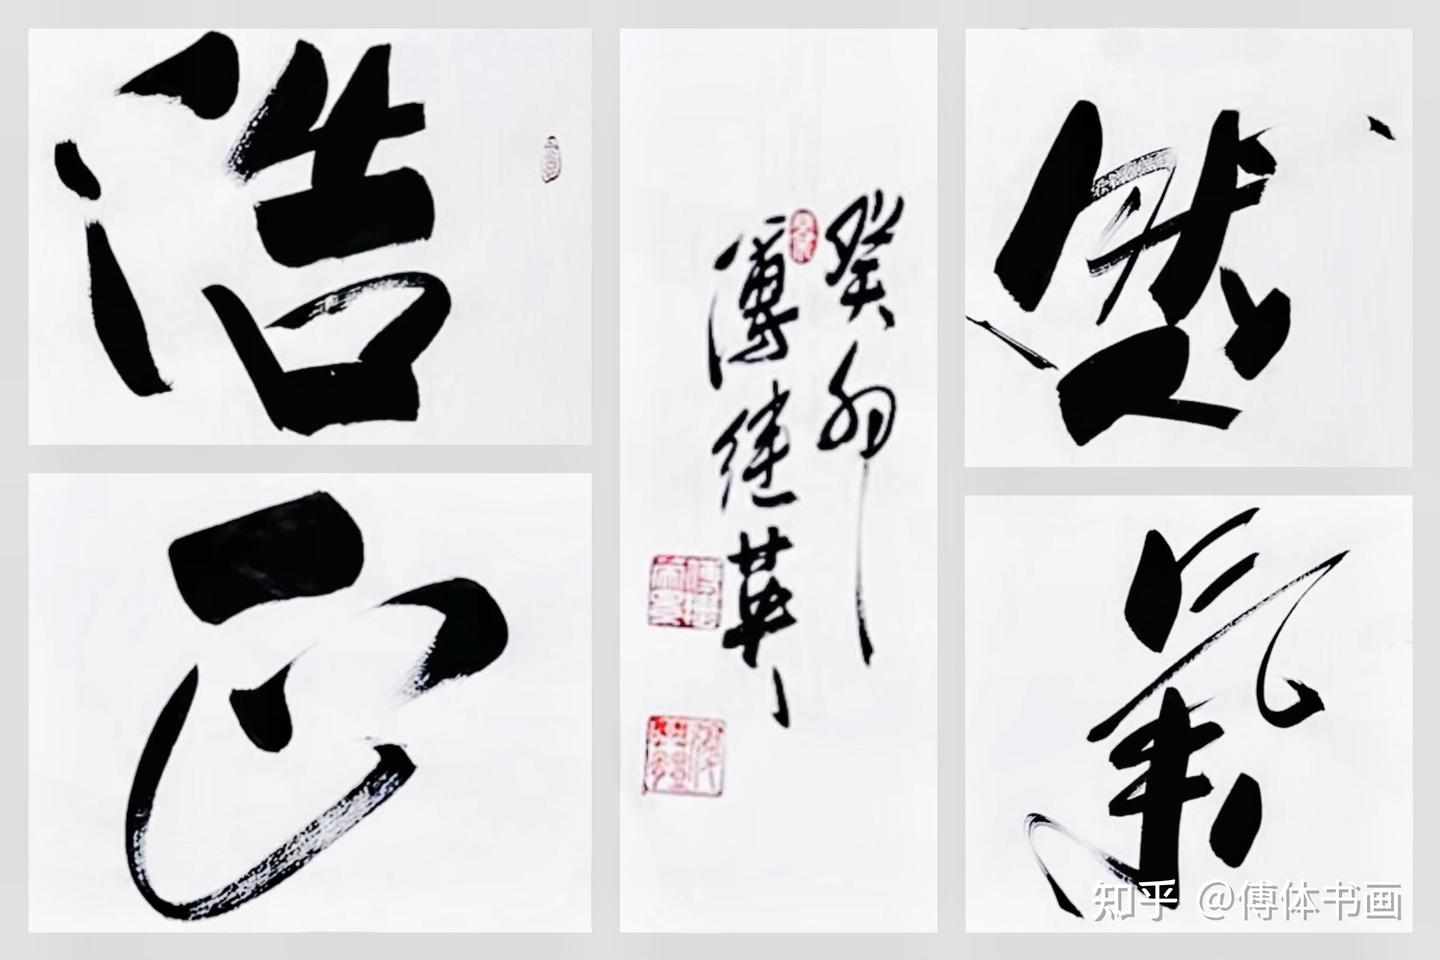 浩然
正氣
癸卯
傅继英
知乎 @傅体书画